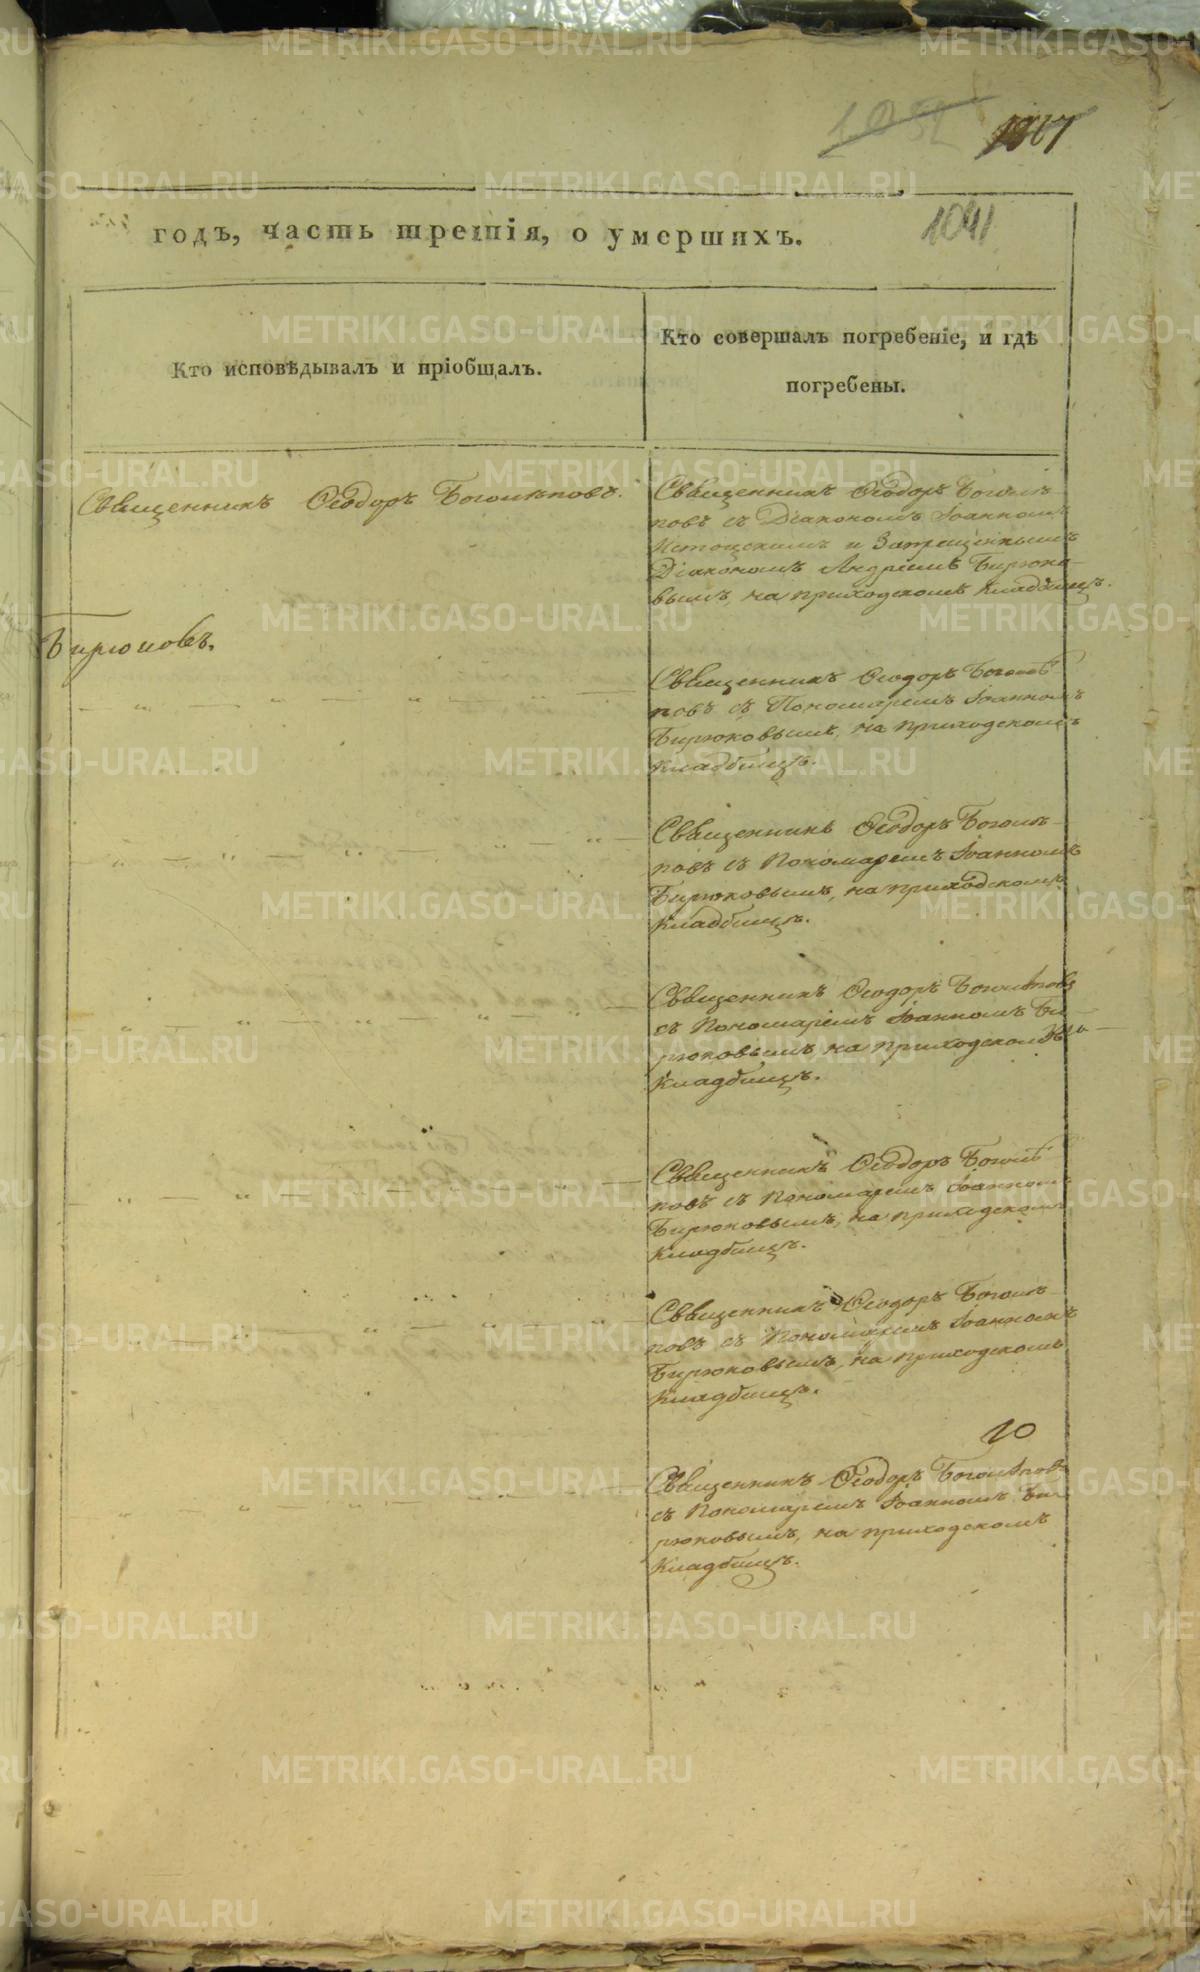 1052 1067
1041
годъ, часть третія, о умершихъ.
Кто исповѣдывалъ и пріобщалъ.
Кто совершалъ погребеніе, и гдѣ
погребены.
Священникъ Ѳеодоръ Боголѣповъ.
Бирюковъ.
Священникъ Ѳеодоръ Боголѣ-
повъ съ Діакономъ Іоанномъ
и Запрещеннымъ
Діакономъ Андреемъ Бирюко-
вымъ, на приходскомъ кладбищѣ.
Священникъ Ѳеодоръ Боголѣ-
повъ съ Пономаремъ Іоанномъ
Бирюковымъ, на приходскомъ
кладбищѣ.
Священникъ Ѳеодоръ Боголѣ-
повъ съ Пономаремъ Іоанномъ
Бирюковымъ, на приходскомъ
кладбищѣ.
Священникъ Ѳеодоръ Боголѣповъ
съ Пономаремъ Іоанномъ Би-
рюковымъ на приходскомъ
кладбищѣ.
Священникъ Ѳеодоръ Боголѣ-
повъ съ Пономаремъ Іоанномъ
Бирюковымъ, на приходскомъ
кладбищѣ.
Священникъ Ѳеодоръ Боголѣ-
повъ съ Пономаремъ Іоанномъ
Бирюковымъ, на приходскомъ
кладбищѣ.
Священникъ Ѳеодоръ Боголѣповъ
съ Пономаремъ Іоанномъ Би-
рюковымъ, на приходскомъ
кладбищѣ.
METRIKI.GASO-URAL.RU